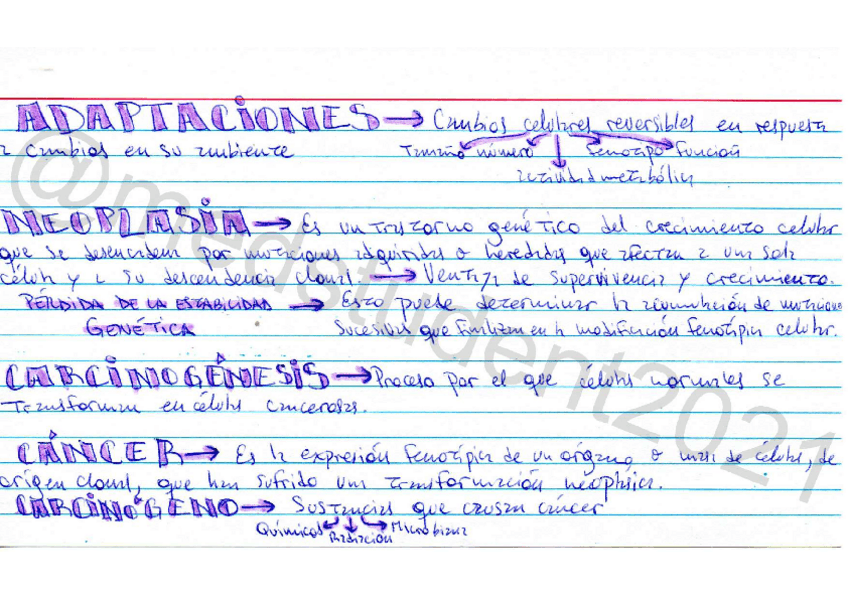 ADAPTACIONES → Cambios celulares reversibles en respuesta
a cambios en su ambiente
Tamaño número fenotipo función
actividad metabólica
NEOPLASIA → Es un trastorno genético del crecimiento celular
que se desencadena por mutaciones adquiridas o heredadas que afectan a una sola
célula y a su descendencia clonal. → Ventaja de supervivencia y crecimiento.
PÉRDIDA DE LA ESTABILIDAD → Esto puede determinar la acumulación de mutaciones
GENÉTICA sucesivas que finalizan en la modificación fenotípica celular.
CARCINOGÉNESIS → Proceso por el que células normales se
transforman en células cancerosas.
CÁNCER → Es la expresión fenotípica de un órgano, o masa de células, de
origen clonal, que han sufrido una transformación neoplásica.
CARCINÓGENO → Sustancias que causan cáncer
Químicos Radiación Microbiana
@medstudent2021